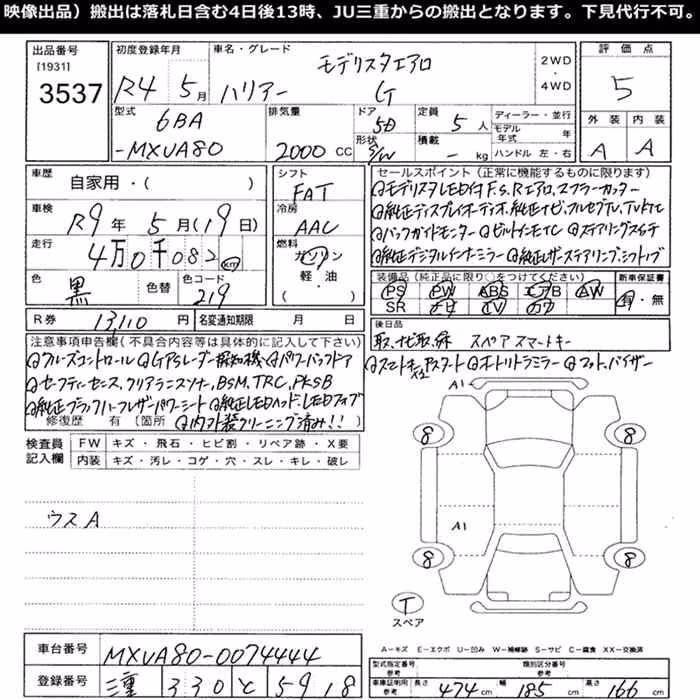 映像出品）搬出は落札日含む4日後13時、JU三重からの搬出となります。下見代行不可。
出品番号
[1931]
3537
初度登録年月
R4 5月
車名・グレード
モデリスタエアロ
ハリアー G
2WD
・
4WD
評価点
5
外装 内装
A A
型式
6BA
-MXUA80
排気量
2000 cc
ドア
5D
形状
S/W
定員
5人
積載
- kg
ディーラー・並行
モデル年式 年
ハンドル 左・右
車歴
自家用・( )
車検
R9年 5月(19日)
走行
4万0千082 km
色
黒
色替
色コード
219
シフト
FAT
冷房
AAC
燃料
ガソリン
軽・油
( )
R券
13110円
名変通知期限 月 日
セールスポイント(正常に機能するものに限ります)
◎モデリスタLED付F.S.Rエアロ、マフラーカッター
◎純正ディスプレイオーディオ、純正ナビ、フルセグTV、TVKTC
◎バックガイドモニター ◎ビルトインETC ◎ステアリングスイッチ
◎純正デジタルインナーミラー ◎純正レザーステアリング、シフトノブ
装備品(純正品に限り○をつけてください)
PS PW ABS エアB AW
SR ナビ TV カワ
新車保証書
有・無
後日品
取、ナビ取、保 スペアスマートキー
◎スマートキー、Pスタート ◎オートリトラミラー ◎フロアマット、バイザー
注意事項申告欄(不具合内容等は具体的に記入して下さい)
◎クルーズコントロール ◎GPSレーダー探知機 ◎パワーバックドア
◎セーフティーセンス、クリアランスソナー、BSM、TRC、PKSB
◎純正ブラックハーフレザーパワーシート ◎純正LEDヘッド、LEDフォグ
修復歴 有 (箇所 ◎内外装クリーニング済み!!)
検査員記入欄
FW キズ・飛石・ヒビ割・リペア跡・X要
内装 キズ・汚レ・コゲ・穴・スレ・キレ・破レ
ウスA
A1
8 8
A1
8 8
T
スペア
A-キズ E-エクボ U-凹み W-補修跡 S-サビ C-腐食 XX-交換済
車台番号
MXUA80-0074444
登録番号
三重 330 と 5918
型式指定番号
参考
類別区分番号
参考
車庫証明用
参考
長さ 474cm 幅 185cm 高さ 166cm